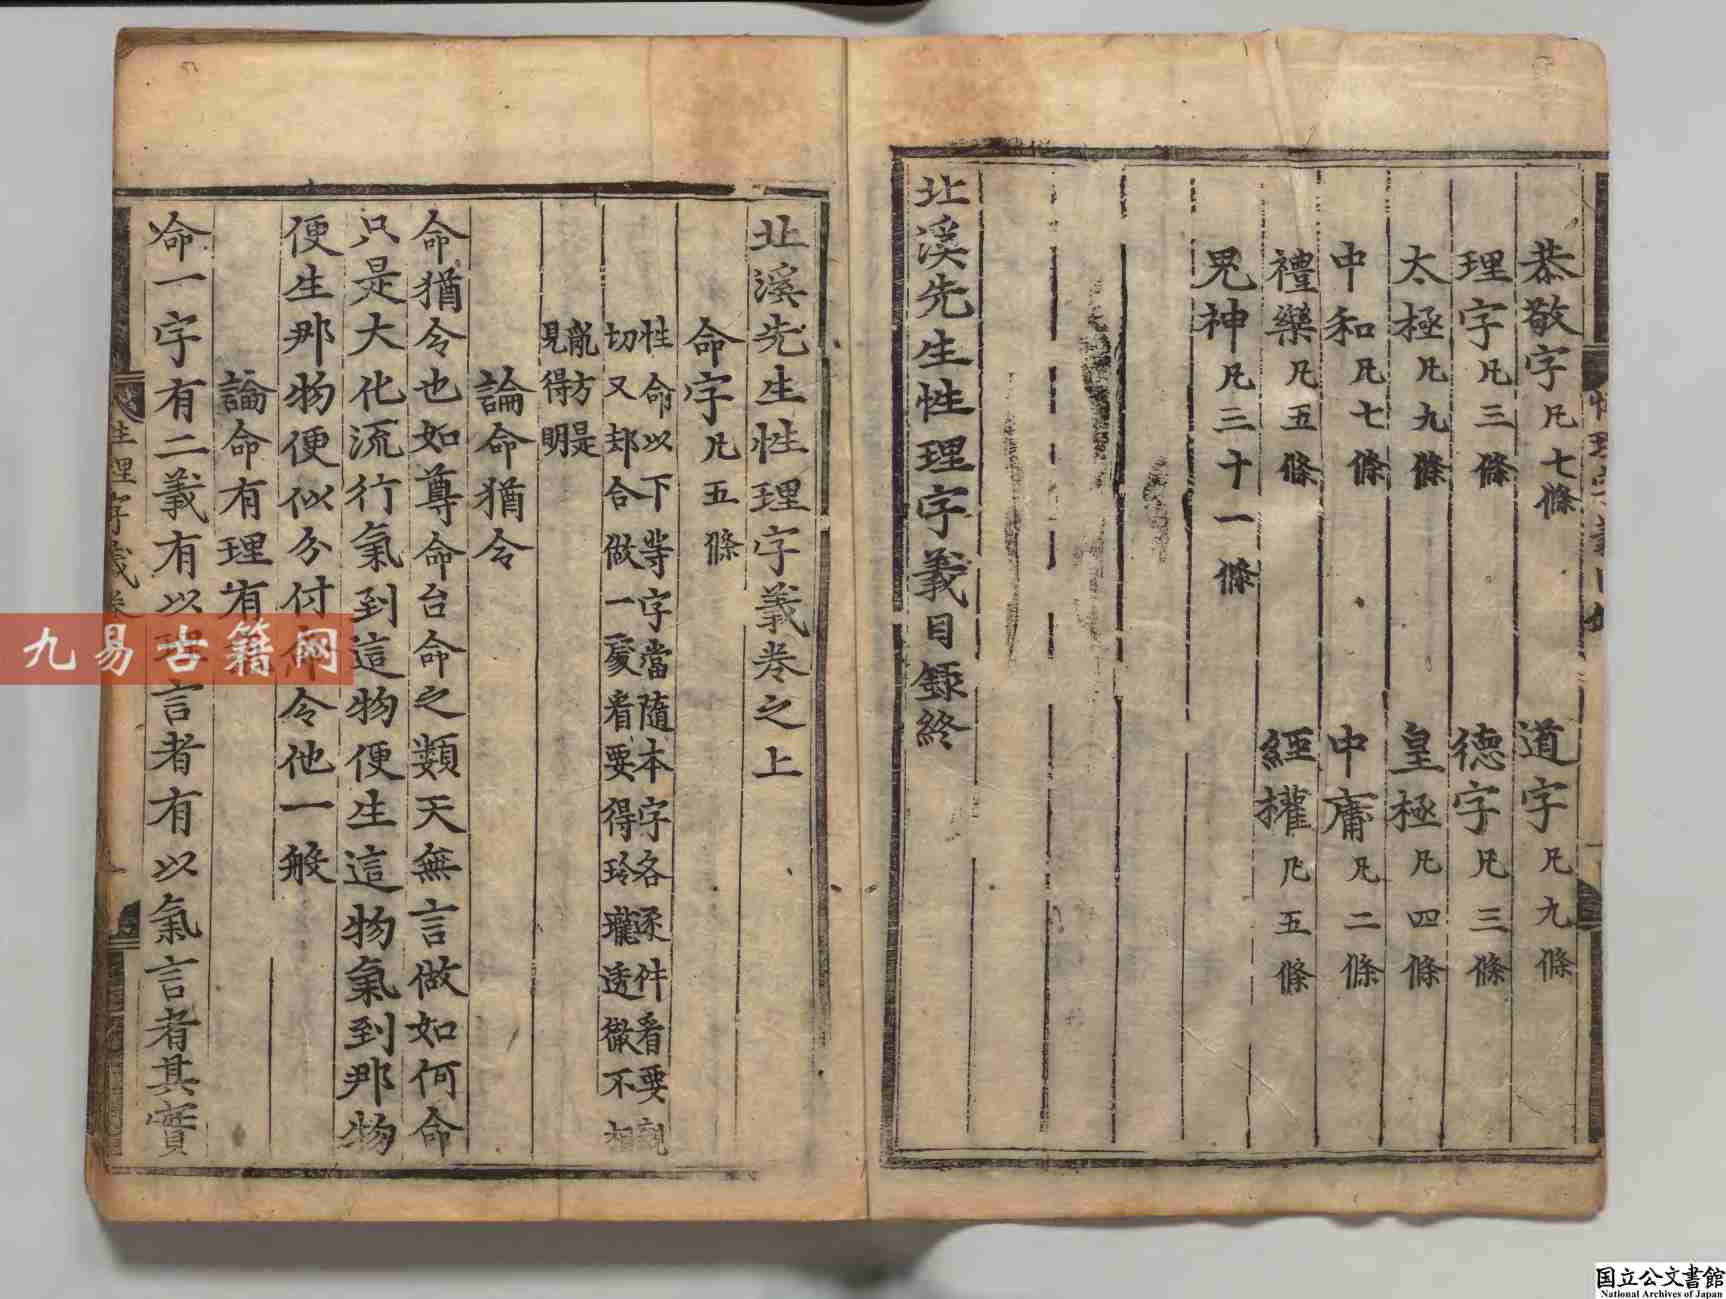 恭敬字凡七條 道字凡九條
理字凡三條 德字凡三條
太極凡九條 皇極凡四條
中和凡七條 中庸凡二條
禮樂凡五條 經權凡五條
鬼神凡三十一條
北溪先生性理字義目錄終
北溪先生性理字義卷之上
命字凡五條
性命以下等字當隨本字各逐件看要親
切又却合做一處看要得玲瓏透徹不相
亂方是
見得明
論命猶令
命猶令也如尊命台命之類天無言做如何命
只是大化流行氣到這物便生這物氣到那物
便生那物便似分付命令他一般
論命有理有
命一字有二義有以理言者有以氣言者其實
九易古籍网
国立公文書館
National Archives of Japan